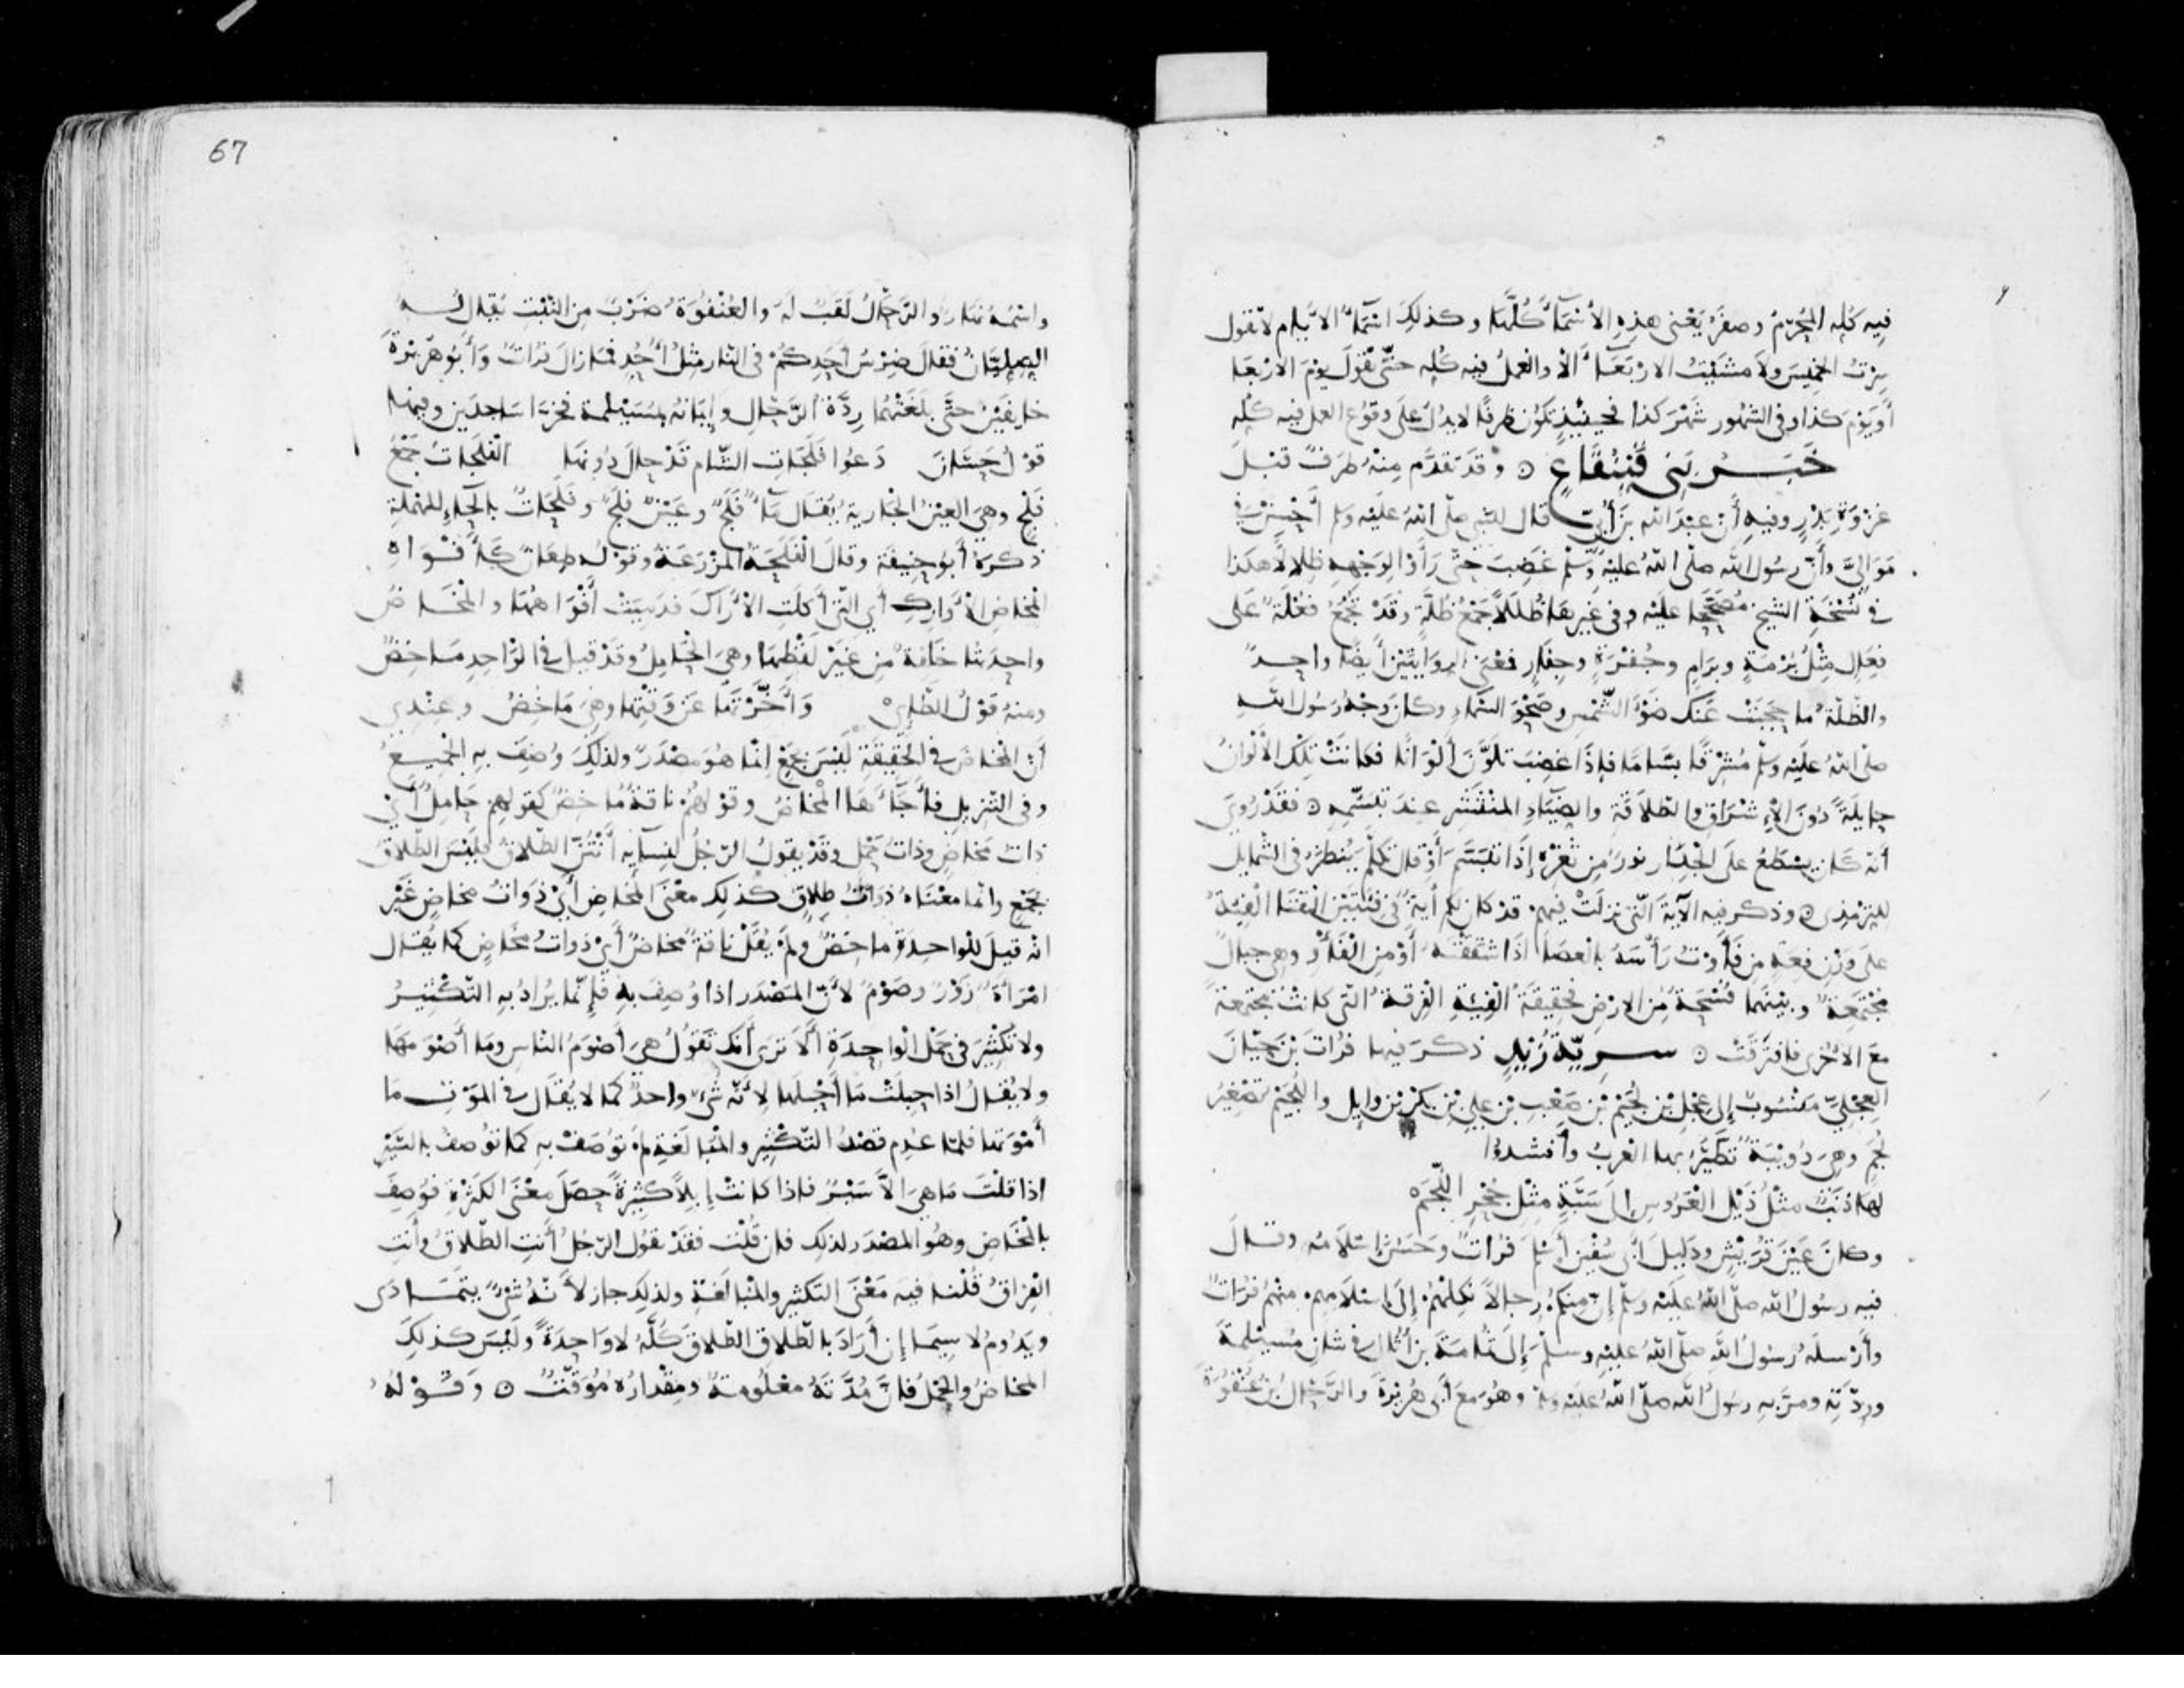 فيه كله المحرم وصفر يعني هذه الأسماء كلها وكذلك اسماء الايام لا تقول
سرت الخميس ولا مشيت الاربعاء الا والعمل فيه كله حتى تقول يوم الاربعا
أو يوم كذا وفي الشهور شهر كذا فحينئذ تكون ظرفا لا يدل على وقوع العمل فيه كله
خبر بني قينقاع وقد تقدم منه طرف قبل
غزوة بدر وفيه أن عبد الله بن أبي قال للنبي صلى الله عليه وسلم أحسن في
موالي وأن رسول الله صلى الله عليه وسلم غضب حتى رأوا لوجهه ظلالا هكذا
في نسخة الشيخ مصححا عليه وفي غيرها ظللا جمع ظلة وقد تجمع فعلة على
فعال مثل برمة وبرام وجفرة وجفار فمعنى الروايتين أيضا واحد
والظلة ما حجبت عنك ضوء الشمس وصحو السماء وكان وجه رسول الله
صلى الله عليه وسلم مشرقا بساما فإذا غضب تلون ألوانا فكانت تلك الألوان
حايلة دون الإشراق والطلاقة والضياء المنتشر عند تبسمه فقد روي
أنه كان يسطع على الجدار نور من ثغره إذا تبسم أو قال تكلم ينظر في الشمايل
للترمذي وذكر فيه الآية التي نزلت فيهم قد كان لكم أية في فئتين التقتا الفئة
على وزن فعة من فأوت رأسه بالعصا اذا شققته أو من الفأو وهي جبال
مجتمعة وبينهما فسحة من الارض فحقيقة الفئة الفرقة التي كانت مجتمعة
مع الأخرى فافترقت سرية زيد ذكر فيها فرات بن حيان
العجلي منسوب إلى عجل بن لجيم بن صعب بن علي بن بكر بن وايل واللجيم تصغير
لجم وهي دويبة تطير بها العرب وأنشدوا
لها ذنب مثل ذيل العروس إلى سبة مثل جحر اللجم
وكان عين قريش ودليل أبي سفين أسلم فرات وحسن إسلامه وقال
فيه رسول الله صلى الله عليه وسلم إن منكم رجالا نكلهم إلى إسلامهم منهم فرات
وأرسله رسول الله صلى الله عليه وسلم إلى ثمامة بن أثال في شان مسيلمة
وردته ومر به رسول الله صلى الله عليه وسلم وهو مع أبي هريرة والرحال بن عنفوة
67
واسمه نهار والرحال لقب له والعنفوة ضرب من النبت يقال له
فقال ضرس أحدكم في النار مثل أحد فما زال فرات وأبو هريرة
خايفين حتى بلغتهما ردة الرحال وإيمانه بمسيلمة فخرا ساجدين وفيها
قول حسان دعوا فلجات الشام قد حال دونها الفلجات جمع
فلج وهي العين الجارية يقال ماء فلج وعين فلج وفلحات بالحاء المهملة
ذكره أبو حنيفة وقال الفلحة المزرعة وقوله طعان كأفواه
المخاض الأوارك أي التي أكلت الأراك فدميت أفواهها والمخاض
واحدتها خلفة من غير لفظها وهي الحامل وقد قيل في الواحد ماخض
ومنه قول الطائي وأخرتها عن وقتها وهي ماخض وعندي
أن المخاض في الحقيقة ليس بجمع إنما هو مصدر ولذلك وصف به الجميع
وفي التنزيل فأجاءها المخاض وقولهم ناقة ماخض كقولهم حامل أي
ذات مخاض وذات حمل وقد يقول الرجل لنسايه أنتن الطلاق فليس الطلاق
بجمع وانما معناه ذوات طلاق كذلك معنى المخاض أي ذوات مخاض غير
انه قيل للواحدة ماخض ولم يقل ناقة مخاض أي ذوات مخاض كما يقال
امرأة زور وصوم لأن المصدر اذا وصف به فإنما يراد به التكثير
ولا تكثير في حمل الواحدة ألا ترى أنك تقول هي أصوم الناس وما أصومها
ولا يقال اذا حبلت ما أحبلها لأنه شيء واحد كما لا يقال في الموت ما
أموتها فلما عدم قصد التكثير والمبالغة لم توصف به كما توصف بالسير
اذا قلت ما هي الا سير فاذا كانت إبلا كثيرة حصل معنى الكثرة فوصف
بالمخاض وهو المصدر لذلك فان قلت فقد يقول الرجل أنت الطلاق وأنت
الفراق قلنا فيه معنى التكثير والمبالغة ولذلك جاز لأنه شيء يتمادى
ويدوم لا سيما إن أراد بالطلاق الطلاق كله لا واحدة وليس كذلك
المخاض والحمل فان مدته معلومة ومقداره موقت وقوله